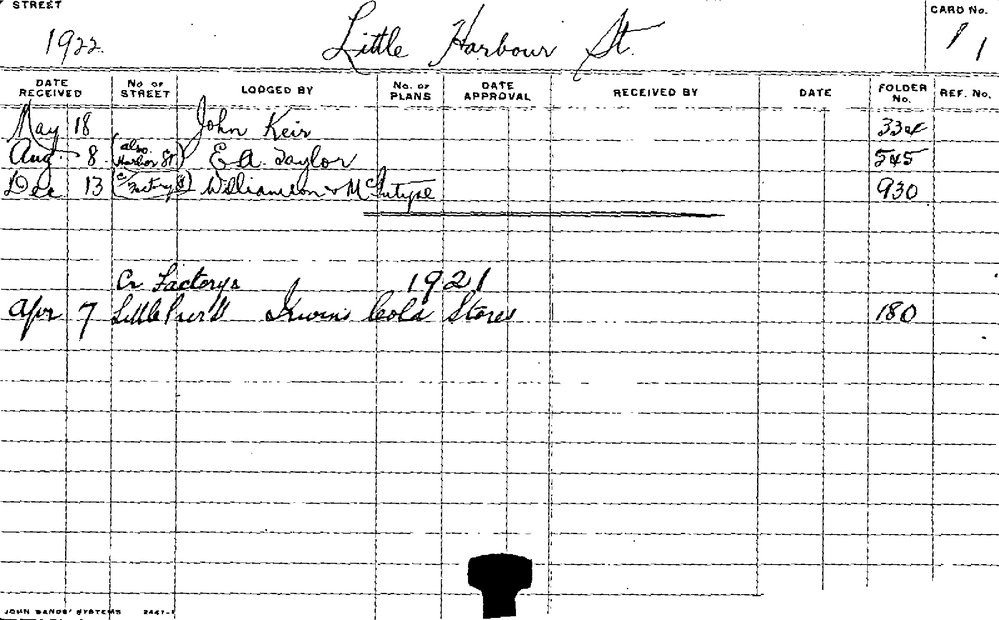 STREET
1922. Little Harbour St. CARD No. 1
DATE RECEIVED No OF STREET LODGED BY No. OF PLANS DATE APPROVAL RECEIVED BY DATE FOLDER No. REF. No.
May 18 John Keir 334
Aug. 8 (also Harbor St) E A. Taylor 545
Dec 13 (Factory St) Williamson & McIntype 930
Cr Factorys 1921
Apr 7 Little Stores 180
JOHN SANDS' SYSTEMS